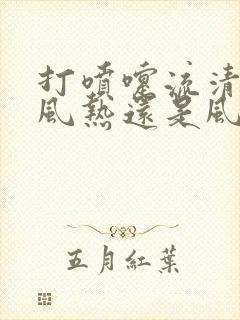 打噴嚏流清
風熱還是風
五月紅葉